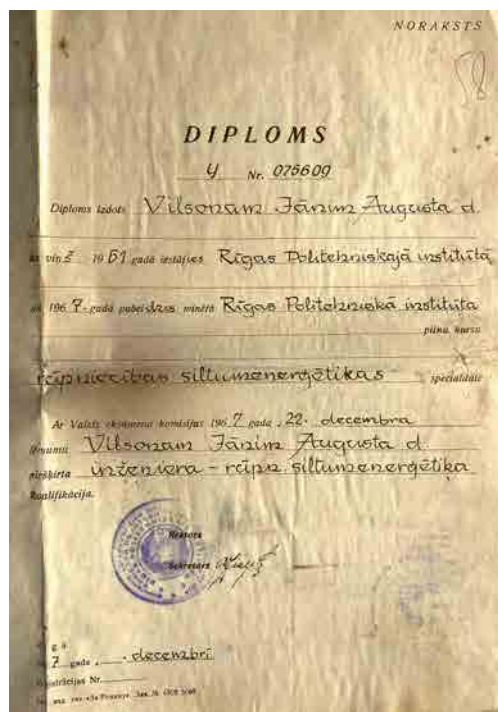 NORAKSTS
58
DIPLOMS
Y Nr. 075609
Diploms izdots Vilsonam Jānim Augusta d.
viņš 1961 gadā iestājies Rīgas Politehniskajā institūtā
un 1967. gadā pabeidzis minētā Rīgas Politehniskā institūta
pilnu kursu
rūpniecības siltumenerģētikas specialitātē
Ar Valsts eksāmenu komisijas 1967 gada 22. decembra
lēmumu Vilsonam Jānim Augusta d.
piešķirta inženiera - rūpn. siltumenerģētiķa
kvalifikācija.
Rektors
Sekretārs
7 gada decembrī
Nr.